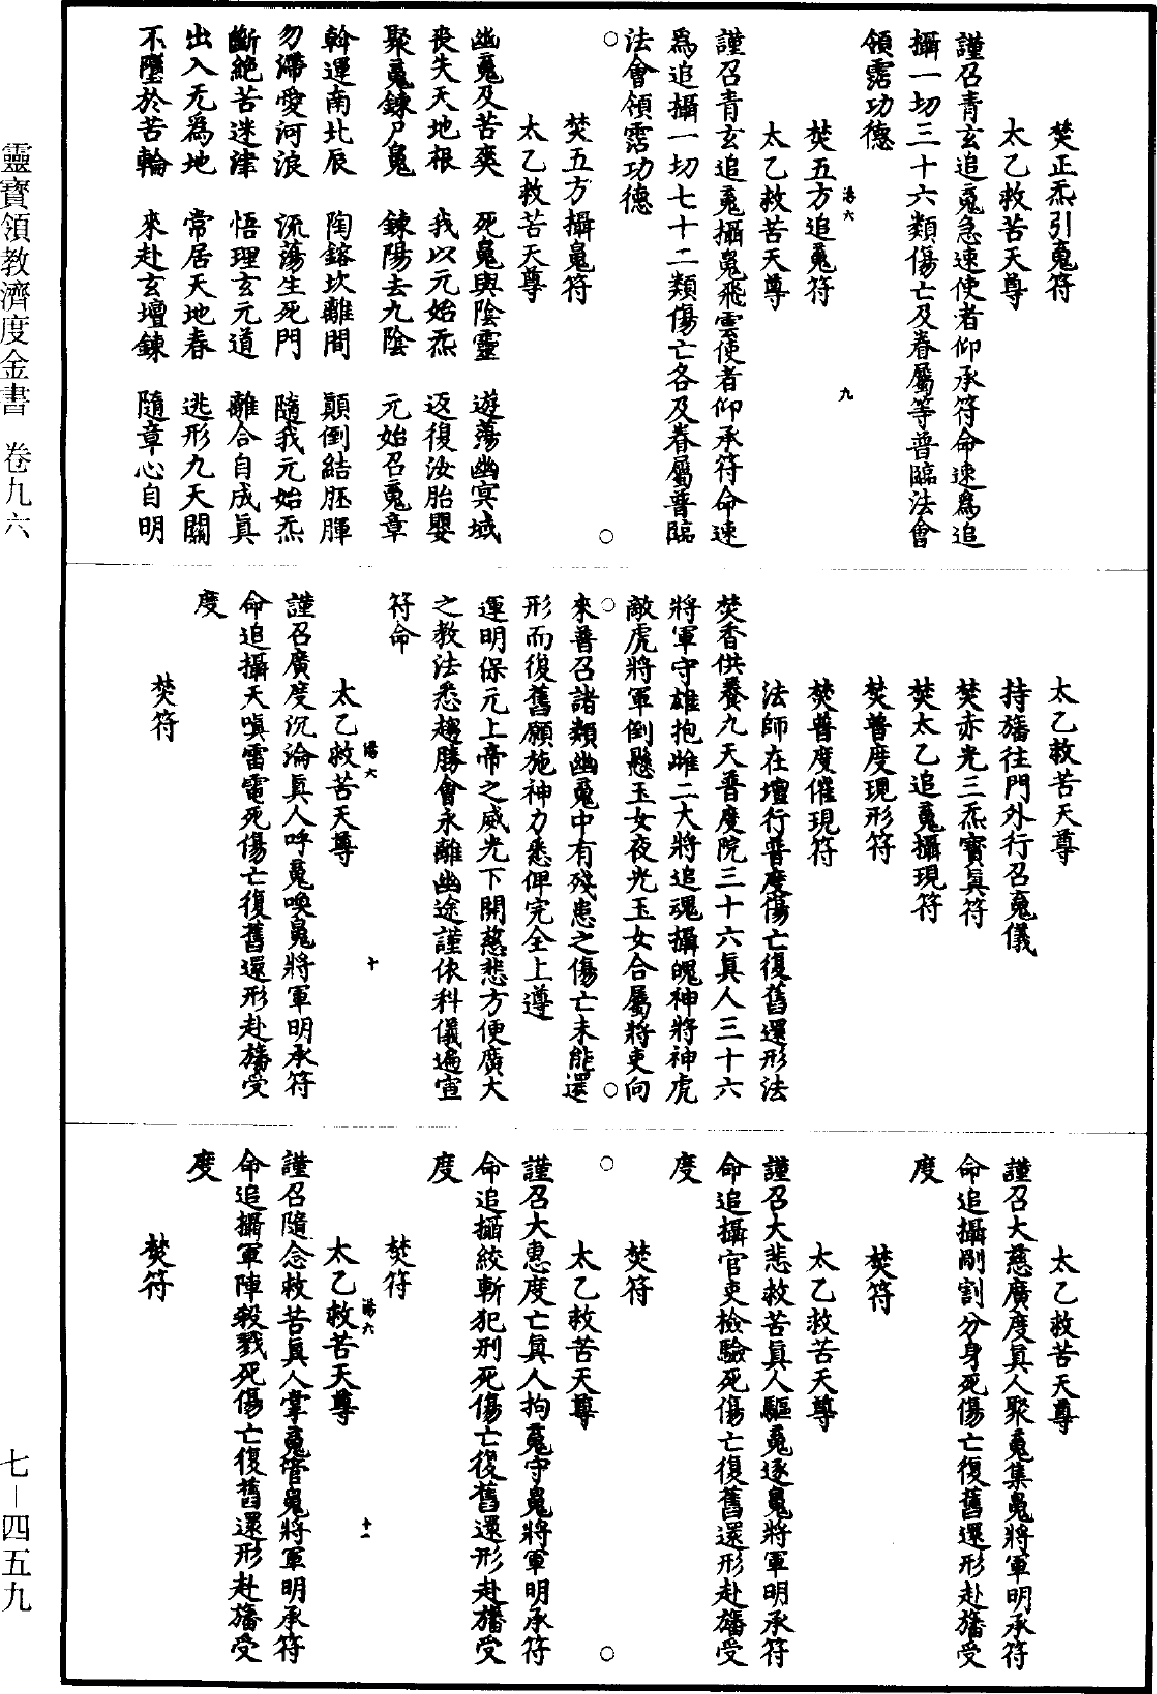 焚正炁引䰟符
太乙救苦天尊
謹召青玄追䰟急速使者仰承符命速爲追
攝一切三十六類傷亡及眷屬等普臨法會
領霑功德
焚五方追䰟符
太乙救苦天尊
謹召青玄追䰟攝䰠飛雲使者仰承符命速
爲追攝一切七十二類傷亡各及眷屬普臨
法會領霑功德
焚五方攝䰠符
太乙救苦天尊
幽䰟及苦爽 死䰠與陰靈 遊蕩幽冥域
喪失天地根 我以元始炁 返復汝胎嬰
聚䰟鍊尸䰠 鍊陽去九陰 元始召䰟章
斡運南北辰 陶鎔坎離間 顛倒結胚腪
勿滯愛河浪 流蕩生死門 隨我元始炁
斷絶苦迷津 悟理玄元道 離合自成眞
出入无爲地 常居天地春 逃形九天關
不墮於苦輪 來赴玄壇鍊 隨章心自明
太乙救苦天尊
持旛往門外行召䰟儀
焚赤光三炁寶眞符
焚太乙追䰟攝現符
焚普度現形符
焚普度催現符
法師在壇行普度傷亡復舊還形法
焚香供養九天普度院三十六眞人三十六
將軍守雄抱雌二大將追魂攝魄神將神虎
敵虎將軍倒懸玉女夜光玉女合屬將吏向
來普召諸類幽䰟中有殘患之傷亡未能還
形而復舊願施神力悉俾完全上遵
運明保元上帝之威光下開慈悲方便廣大
之教法悉趨勝會永離幽途謹依科儀遍宣
符命
太乙救苦天尊
謹召廣度沉淪眞人呼䰟喚䰠將軍明承符
命追攝天嗔雷電死傷亡復舊還形赴旛受
度
焚符
太乙救苦天尊
謹召大慈廣度眞人聚䰟集䰠將軍明承符
命追攝剮割分身死傷亡復舊還形赴旛受
度
焚符
太乙救苦天尊
謹召大悲救苦眞人驅䰟逐䰠將軍明承符
命追攝官吏檢驗死傷亡復舊還形赴旛受
度
焚符
太乙救苦天尊
謹召大惠度亡眞人拘䰟守䰠將軍明承符
命追攝絞斬犯刑死傷亡復舊還形赴旛受
度
焚符
太乙救苦天尊
謹召隨念救苦眞人掌䰟管䰠將軍明承符
命追攝軍陣殺戮死傷亡復舊還形赴旛受
度
焚符
九
十
十一
靈寶領教濟度金書 卷九六
七—四五九